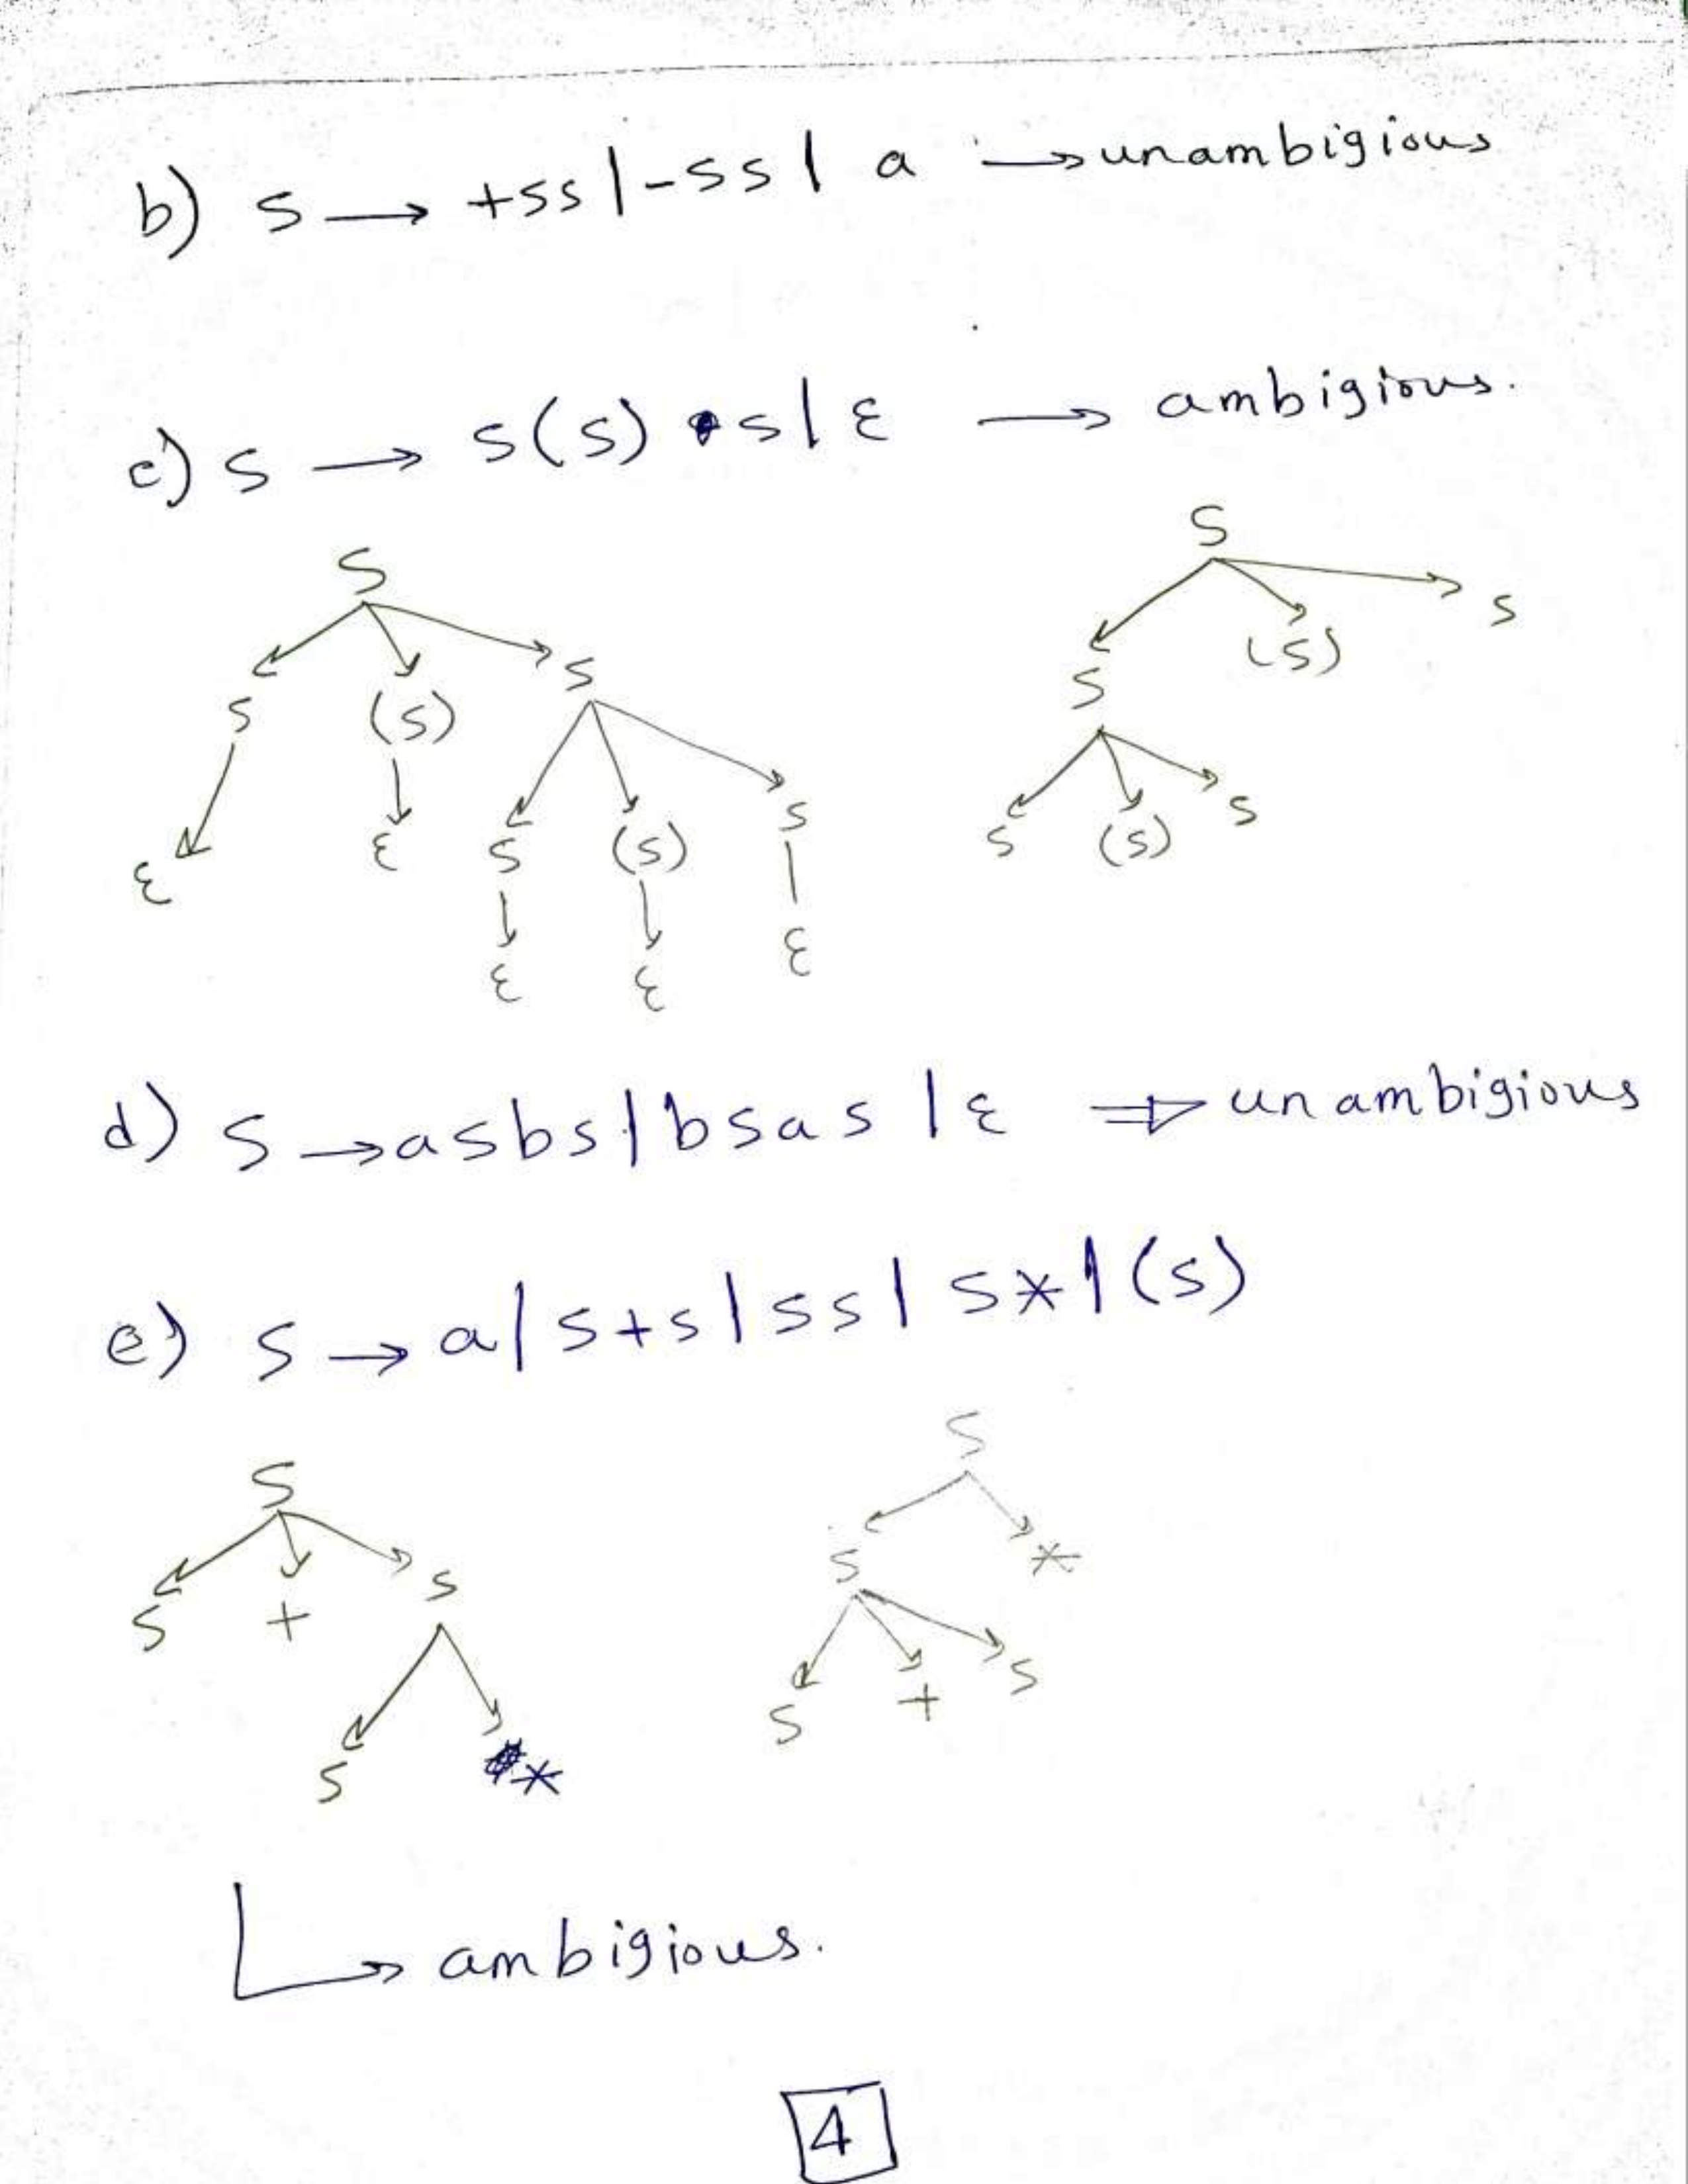 b) S → +SS | -SS | a → unambigious
c) S → S(S) S | ε → ambigious.
S
S (S) S
ε ε S (S) S
ε ε ε
S
S (S) S
S (S) S
d) S → aSbS | bSaS | ε ⇒ unambigious
e) S → a | S+S | SS | S* | (S)
S
S + S
S *
S
S *
S + S
↳ ambigious.
4